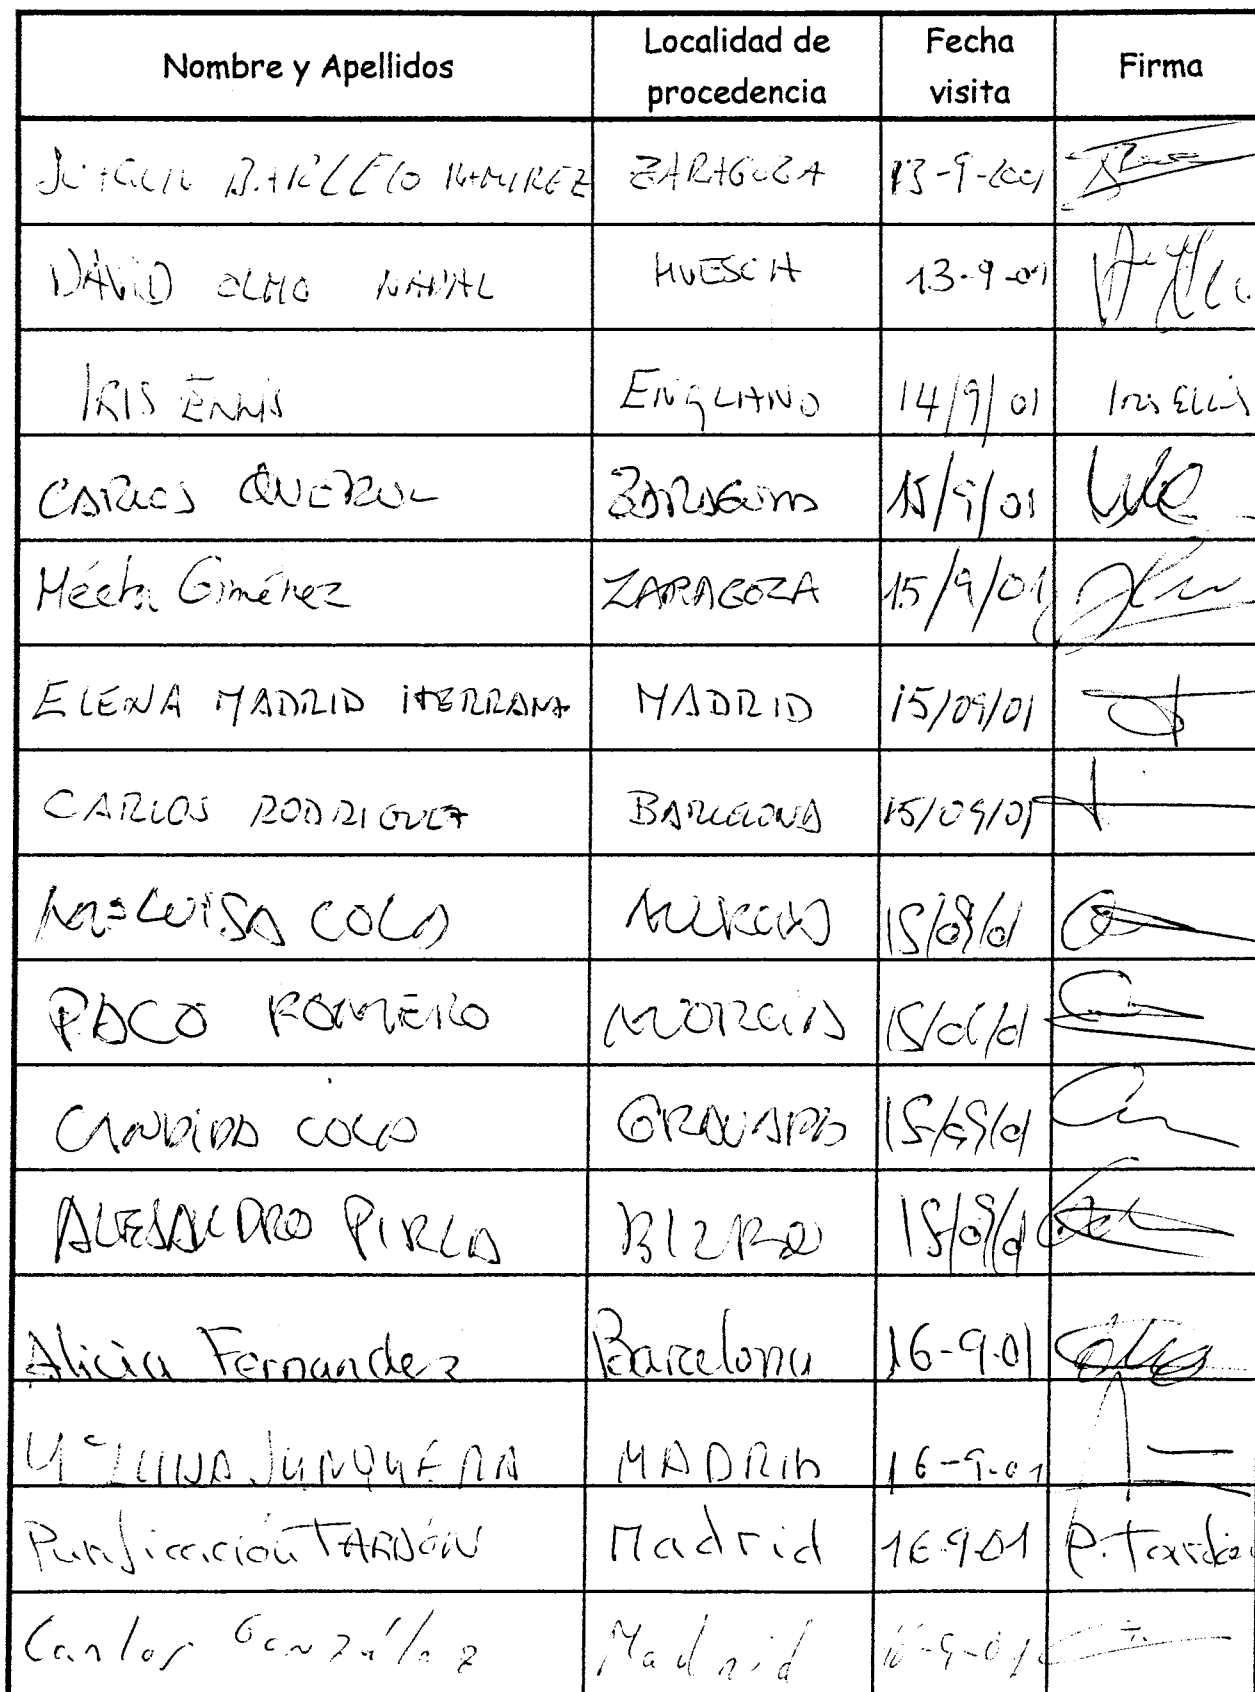 Nombre y Apellidos Localidad de procedencia Fecha visita Firma
BARCELO RAMIREZ ZARAGOZA 13-9-2001
DAVID OLMO NAVAL HUESCA 13-9-01
IRIS ENGLAND 14/9/01 Iris
CARLOS QUEROL ZARAGOZA 15/9/01
Héctor Giménez ZARAGOZA 15/9/01
ELENA MADRID HERRANZ MADRID 15/09/01
CARLOS RODRIGUEZ BARCELONA 15/09/01
Mª LUISA COLA MURCIA 15/09/01
PACO ROMERO MURCIA 15/09/01
CANDIDA COLA GRANADA 15/09/01
ALESANDRO PIRLA 15/09/01
Alicia Fernandez Barcelona 16-9-01
Mª JUNQUERA MADRID 16-9-01
Purificación TARDÓN Madrid 16-9-01 P. Tardón
Carlos González Madrid